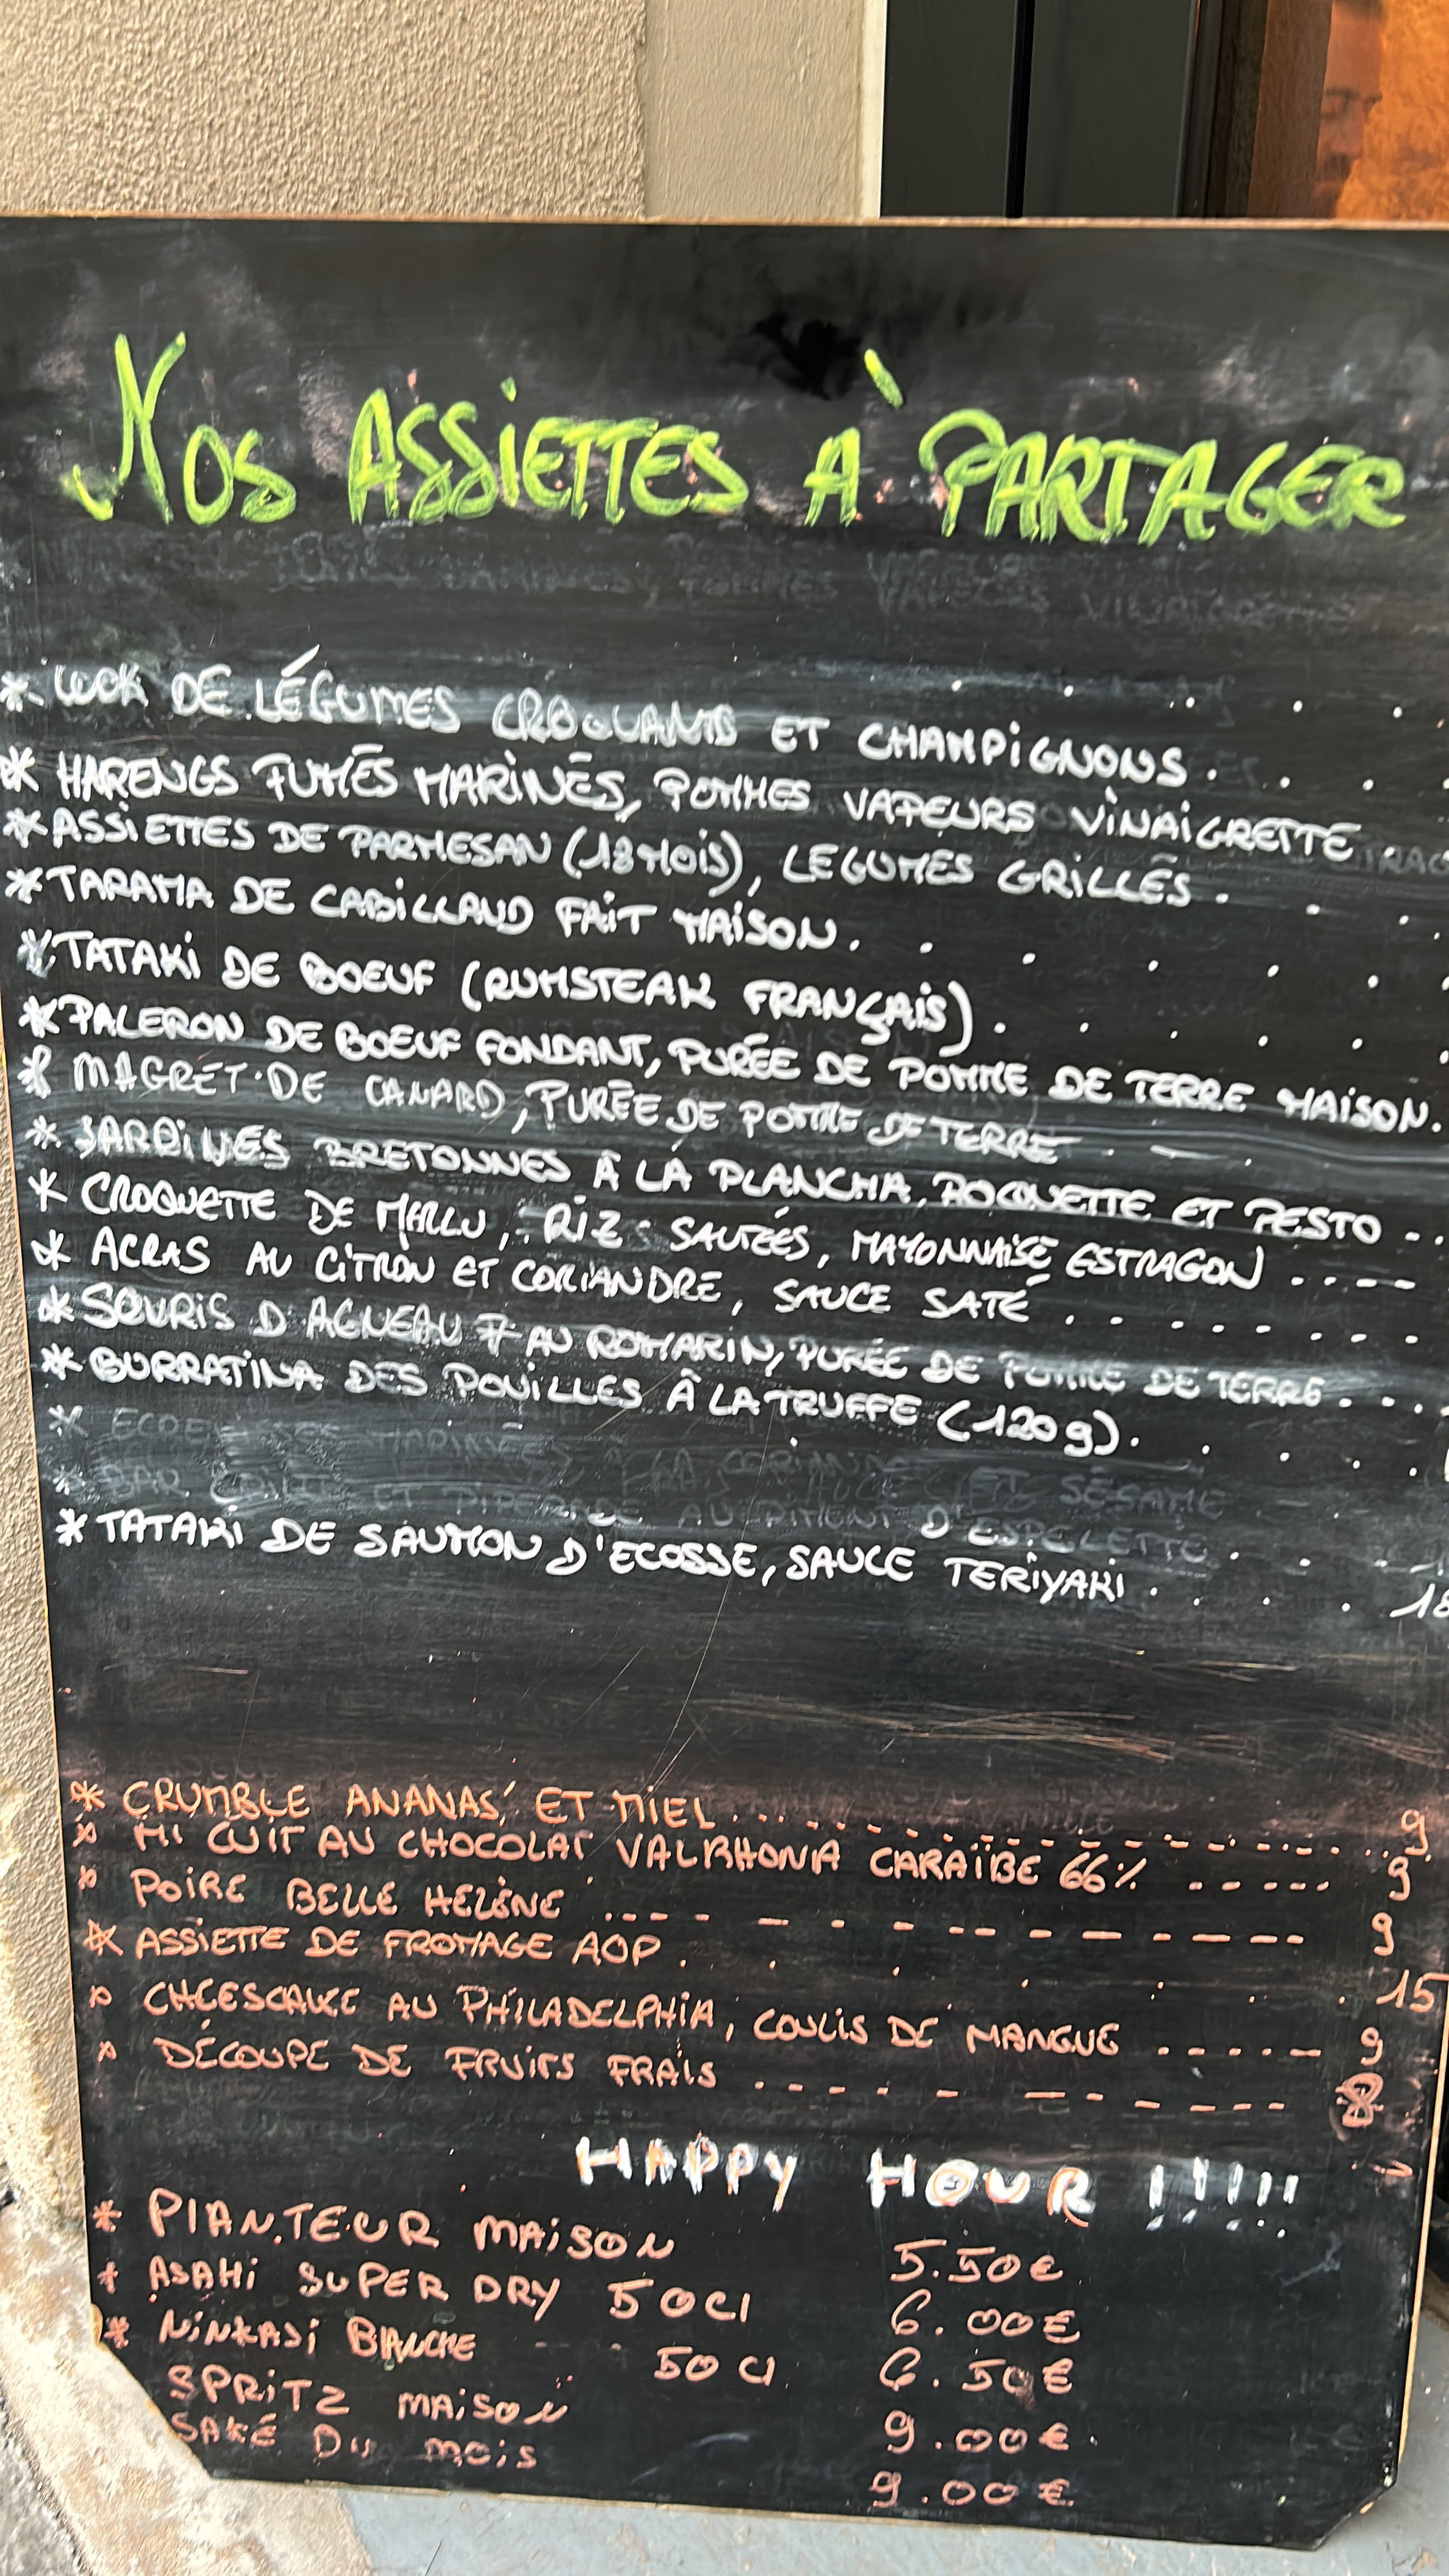 Nos ASSiETTES À PARTAGER
* WOK DE LÉGUMES CROQUANTS ET CHAMPiGNONS
* HARENGS FUMÉS MARiNÉS, POMMES VAPEURS ViNAiGRETTE
* ASSiETTES DE PARMESAN (18 MOiS), LEGUMES GRiLLÉS
* TARAMA DE CABiLLAUD FAiT MAiSON
* TATAKi DE BOEUF (RUMSTEAK FRANÇAiS)
* PALERON DE BOEUF FONDANT, PURÉE DE POMME DE TERRE MAiSON
* MAGRET DE CANARD, PURÉE DE POMME DE TERRE
* SARDiNES BRETONNES À LA PLANCHA, ROQUETTE ET PESTO
* CROQUETTE DE MERLU, RiZ SAUTÉES, MAYONNAiSE ESTRAGON
* ACRAS AU CiTRON ET CORiANDRE, SAUCE SATÉ
* SOURiS D AGNEAU AU ROMARiN, PURÉE DE POMME DE TERRE
* BURRATiNA DES POUiLLES À LA TRUFFE (120g)
* MARiNÉES À LA ET SÉSAME
* BAR ET PiPERADE AU PiMENT D'ESPELETTE
* TATAKi DE SAUMON D'ECOSSE, SAUCE TERiYAKi
* CRUMBLE ANANAS ET MiEL 9
* Mi CUiT AU CHOCOLAT VALRHONA CARAÏBE 66% 9
* POiRE BELLE HELÈNE 9
* ASSiETTE DE FROMAGE AOP 15
* CHEESCAKE AU PHiLADELPHiA, COULiS DE MANGUE 9
* DÉCOUPE DE FRUiTS FRAiS 8
HAPPY HOUR !!!!!
* PLANTEUR MAiSON 5.50€
* ASAHi SUPER DRY 50Cl 6.00€
* NiNKASi BLANCHE 50Cl 6.50€
SPRiTZ MAiSON 9.00€
SAKÉ DU MOiS 9.00€